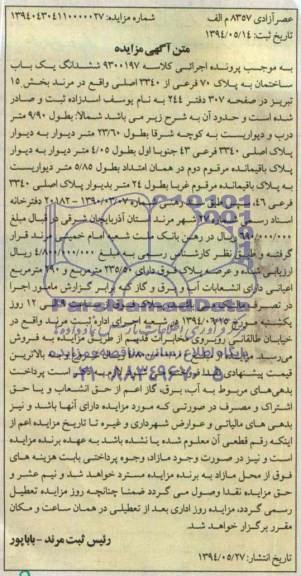 عصر آزادی ۸۳۵۷ م الف شماره مزایده: ۱۳۹۴۰۴۳۰۴۱۱۰۰۰۰۲۷
تاریخ ثبت: ۱۳۹۴/۰۵/۱۴
متن آگهی مزایده
به موجب پرونده اجرائی کلاسه ۹۳۰۰۱۹۷ ششدانگ یک باب
ساختمان به پلاک ۷۰ فرعی از ۳۳۴۰ اصلی واقع در مرند بخش ۱۵
تبریز در صفحه ۳۰۷ دفتر ۲۴۴ به نام یوسف اسدزاده ثبت و صادر
شده است و حدود آن به شرح زیر می باشد شمالا: بطول ۹/۹۰ متر
درب و دیواریست به کوچه شرقا بطول ۲۳/۶۰ متر دیوار به دیوار
پلاک اصلی ۳۳۴۰ فرعی ۴۳ جنوبا اول بطول ۴/۰۵ متر دیوار به دیوار
پلاک باقیمانده مرقوم دوم در همان امتداد بطول ۵/۸۵ متر دیواریست
به پلاک باقیمانده مرقوم غربا بطول ۲۴ متر بدیوار پلاک اصلی ۳۳۴۰
فرعی ۱۴۶ طبق ۱۳۹۰/۰۳/۰۷ - ۲۰۱۸۲ دفترخانه
اسناد رسمی ۲۷ شهر مرند استان آذربایجان شرقی در قبال مبلغ
ریال در رهن بانک ملت شعبه امام خمینی مرند قرار
گرفته و طبق نظر کارشناس رسمی به مبلغ ۴/۸۰۰/۰۰۰/۰۰۰ ریال
ارزیابی شده و عرصه پلاک فوق دارای ۲۳۵/۵۰ مترمربع و ۲۹۰ مترمربع
اعیانی دارای انشعابات آب، برق و گاز که برابر گزارش مامور اجرا
در تصرف پلاک فوق از ساعت ۹ الی ۱۲ روز
یکشنبه مورخ ۱۳۹۴/۰۶/۲۵ در شعبه اجرای اداره ثبت مرند واقع در
خیابان طالقانی روبروی مخابرات قدیم از طریق مزایده به فروش
می رسد. مزایده از مبلغ ریال شروع و به بالاترین
قیمت پیشنهادی نقدا فروخته می شود لازم به ذکر است پرداخت
بدهی های مربوط به آب، برق، گاز اعم از حق انشعاب و یا حق
اشتراک و مصرف در صورتی که مورد مزایده دارای آنها باشد و نیز
بدهی های مالیاتی و عوارض شهرداری و غیره تا تاریخ مزایده اعم از
اینکه رقم قطعی آن معلوم شده یا نشده باشد به عهده برنده مزایده
است و نیز در صورت وجود مازاد، وجوه پرداختی بابت هزینه های
فوق از محل مازاد به برنده مزایده مسترد خواهد شد و نیم عشر و
حق مزایده نقدا وصول می گردد ضمنا چنانچه روز مزایده تعطیل
رسمی گردد، مزایده روز اداری بعد از تعطیلی در همان ساعت و مکان
مقرر برگزار خواهد شد.
رئیس ثبت مرند - باباپور
تاریخ انتشار: ۱۳۹۴/۰۵/۲۷
ParsNamadData
گردآوری اطلاعات پارس نماد داده ها
پایگاه اطلاع رسانی مناقصه و مزایده
۰۲۱-۸۸۳۴۹۶۷۰-۵